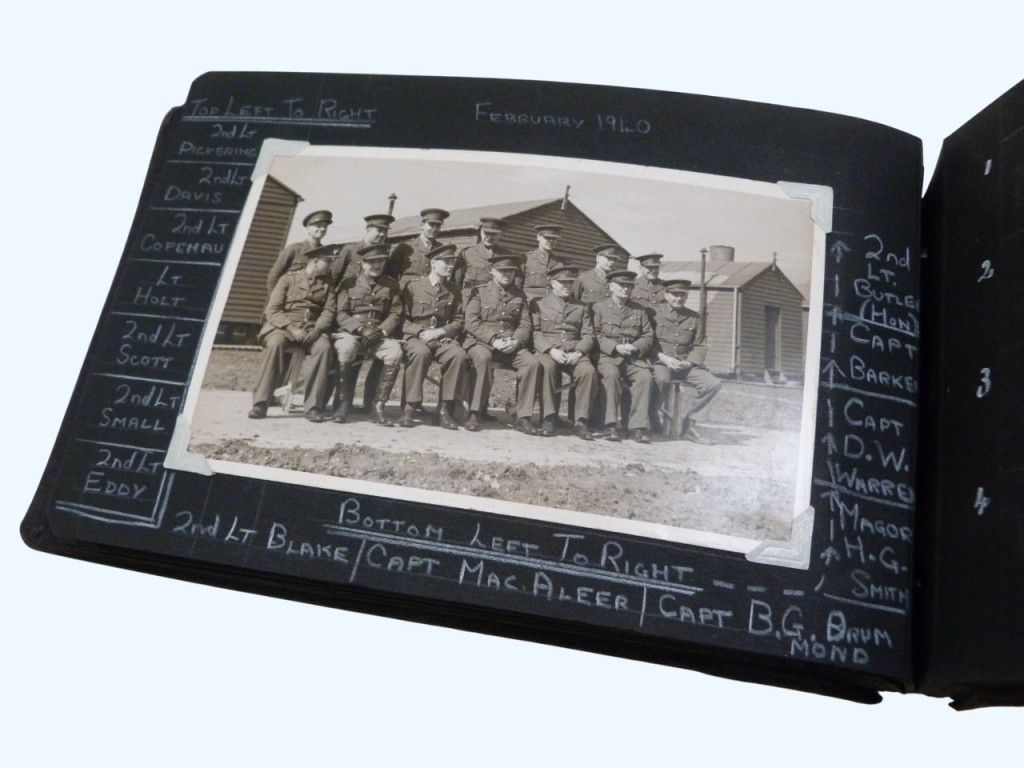 February 1940
Top Left To Right
2nd Lt
Pickering
2nd Lt
Davis
2nd Lt
Copemau
Lt
Holt
2nd Lt
Scott
2nd Lt
Small
2nd Lt
Eddy
Bottom Left To Right
2nd Lt Blake / Capt Mac.Aleer / Capt B.G. Drum
mond
Magor
H.G.
Smith
Capt
D.W.
Warre
Capt
Barke
2nd
Lt.
Butle
(Hon)
1
2
3
4